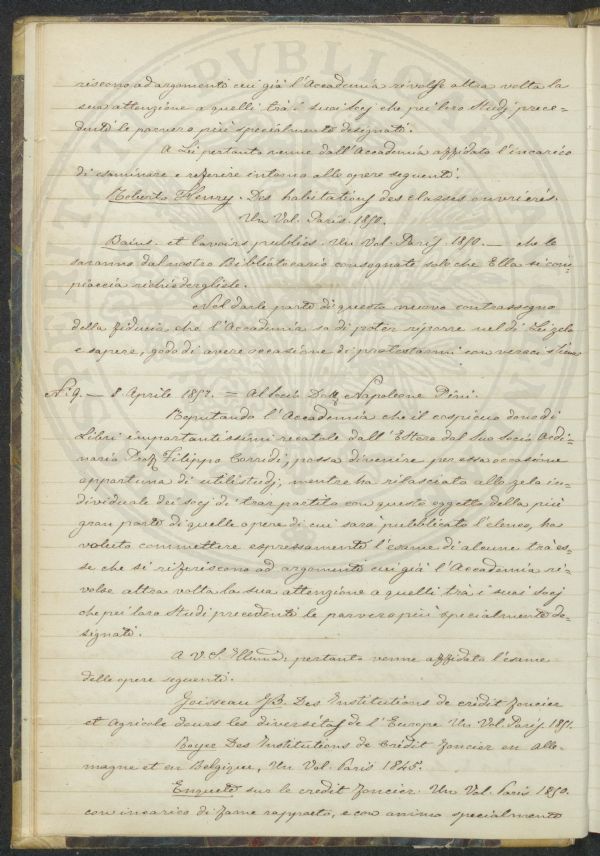 riscono ad argomenti cui già l'Accademia rivolse altra volta la
sua attenzione a quelli tra i suoi Socj che pei loro Studj prece-
denti le parvero più specialmente designati.
A Lei pertanto venne dall'Accademia affidato l'incarico
di esaminare e referire intorno alle opere seguenti.
Roberto Henry. Des habitations des classes ouvrières.
Un Vol. Paris. 1850.
Bains et lavoirs publics. Un Vol. Paris. 1850. — che le
saranno dal nostro Bibliotecario consegnate solo che Ella si com-
piaccia richiedergliele.
Nel darle parte di questo nuovo contrassegno
della fiducia che l'Accademia sa di poter riporre nel di Lei zelo
e sapere, godo di avere occasione di protestarmi con vera stima
N.º 9. — 8 Aprile 1852. = Al Socio Dott. Napoleone Pini.
Reputando l'Accademia che il cospicuo dono di
Libri importantissimi recatole dall'Estero dal Suo Socio Ordi-
nario Prof. Filippo Corridi, possa divenire per essa occasione
opportuna di utili studj, mentre ha rilasciato allo zelo in-
dividuale dei socj di trar partito con questo oggetto della più
gran parte di quelle opere di cui sarà pubblicato l'elenco, ha
voluto commettere espressamente l'esame di alcune tra es-
se che si riferiscono ad argomenti cui già l'Accademia ri-
volse altra volta la sua attenzione a quelli tra i suoi socj
che pei loro Studi precedenti le parvero più specialmente de-
signati.
A V. S. Illma. pertanto venne affidato l'esame
delle opere seguenti.
Josseau J.B. Des Institutions de credit foncier
et Agricole dans les divers états de l'Europe Un Vol. Paris. 1851.
Royer Des Institutions de Credit foncier en Alle-
magne et en Belgique, Un Vol. Paris 1845.
Enquete sur le credit foncier. Un Vol. Paris 1850.
con incarico di farne rapporto, e con animo specialmente